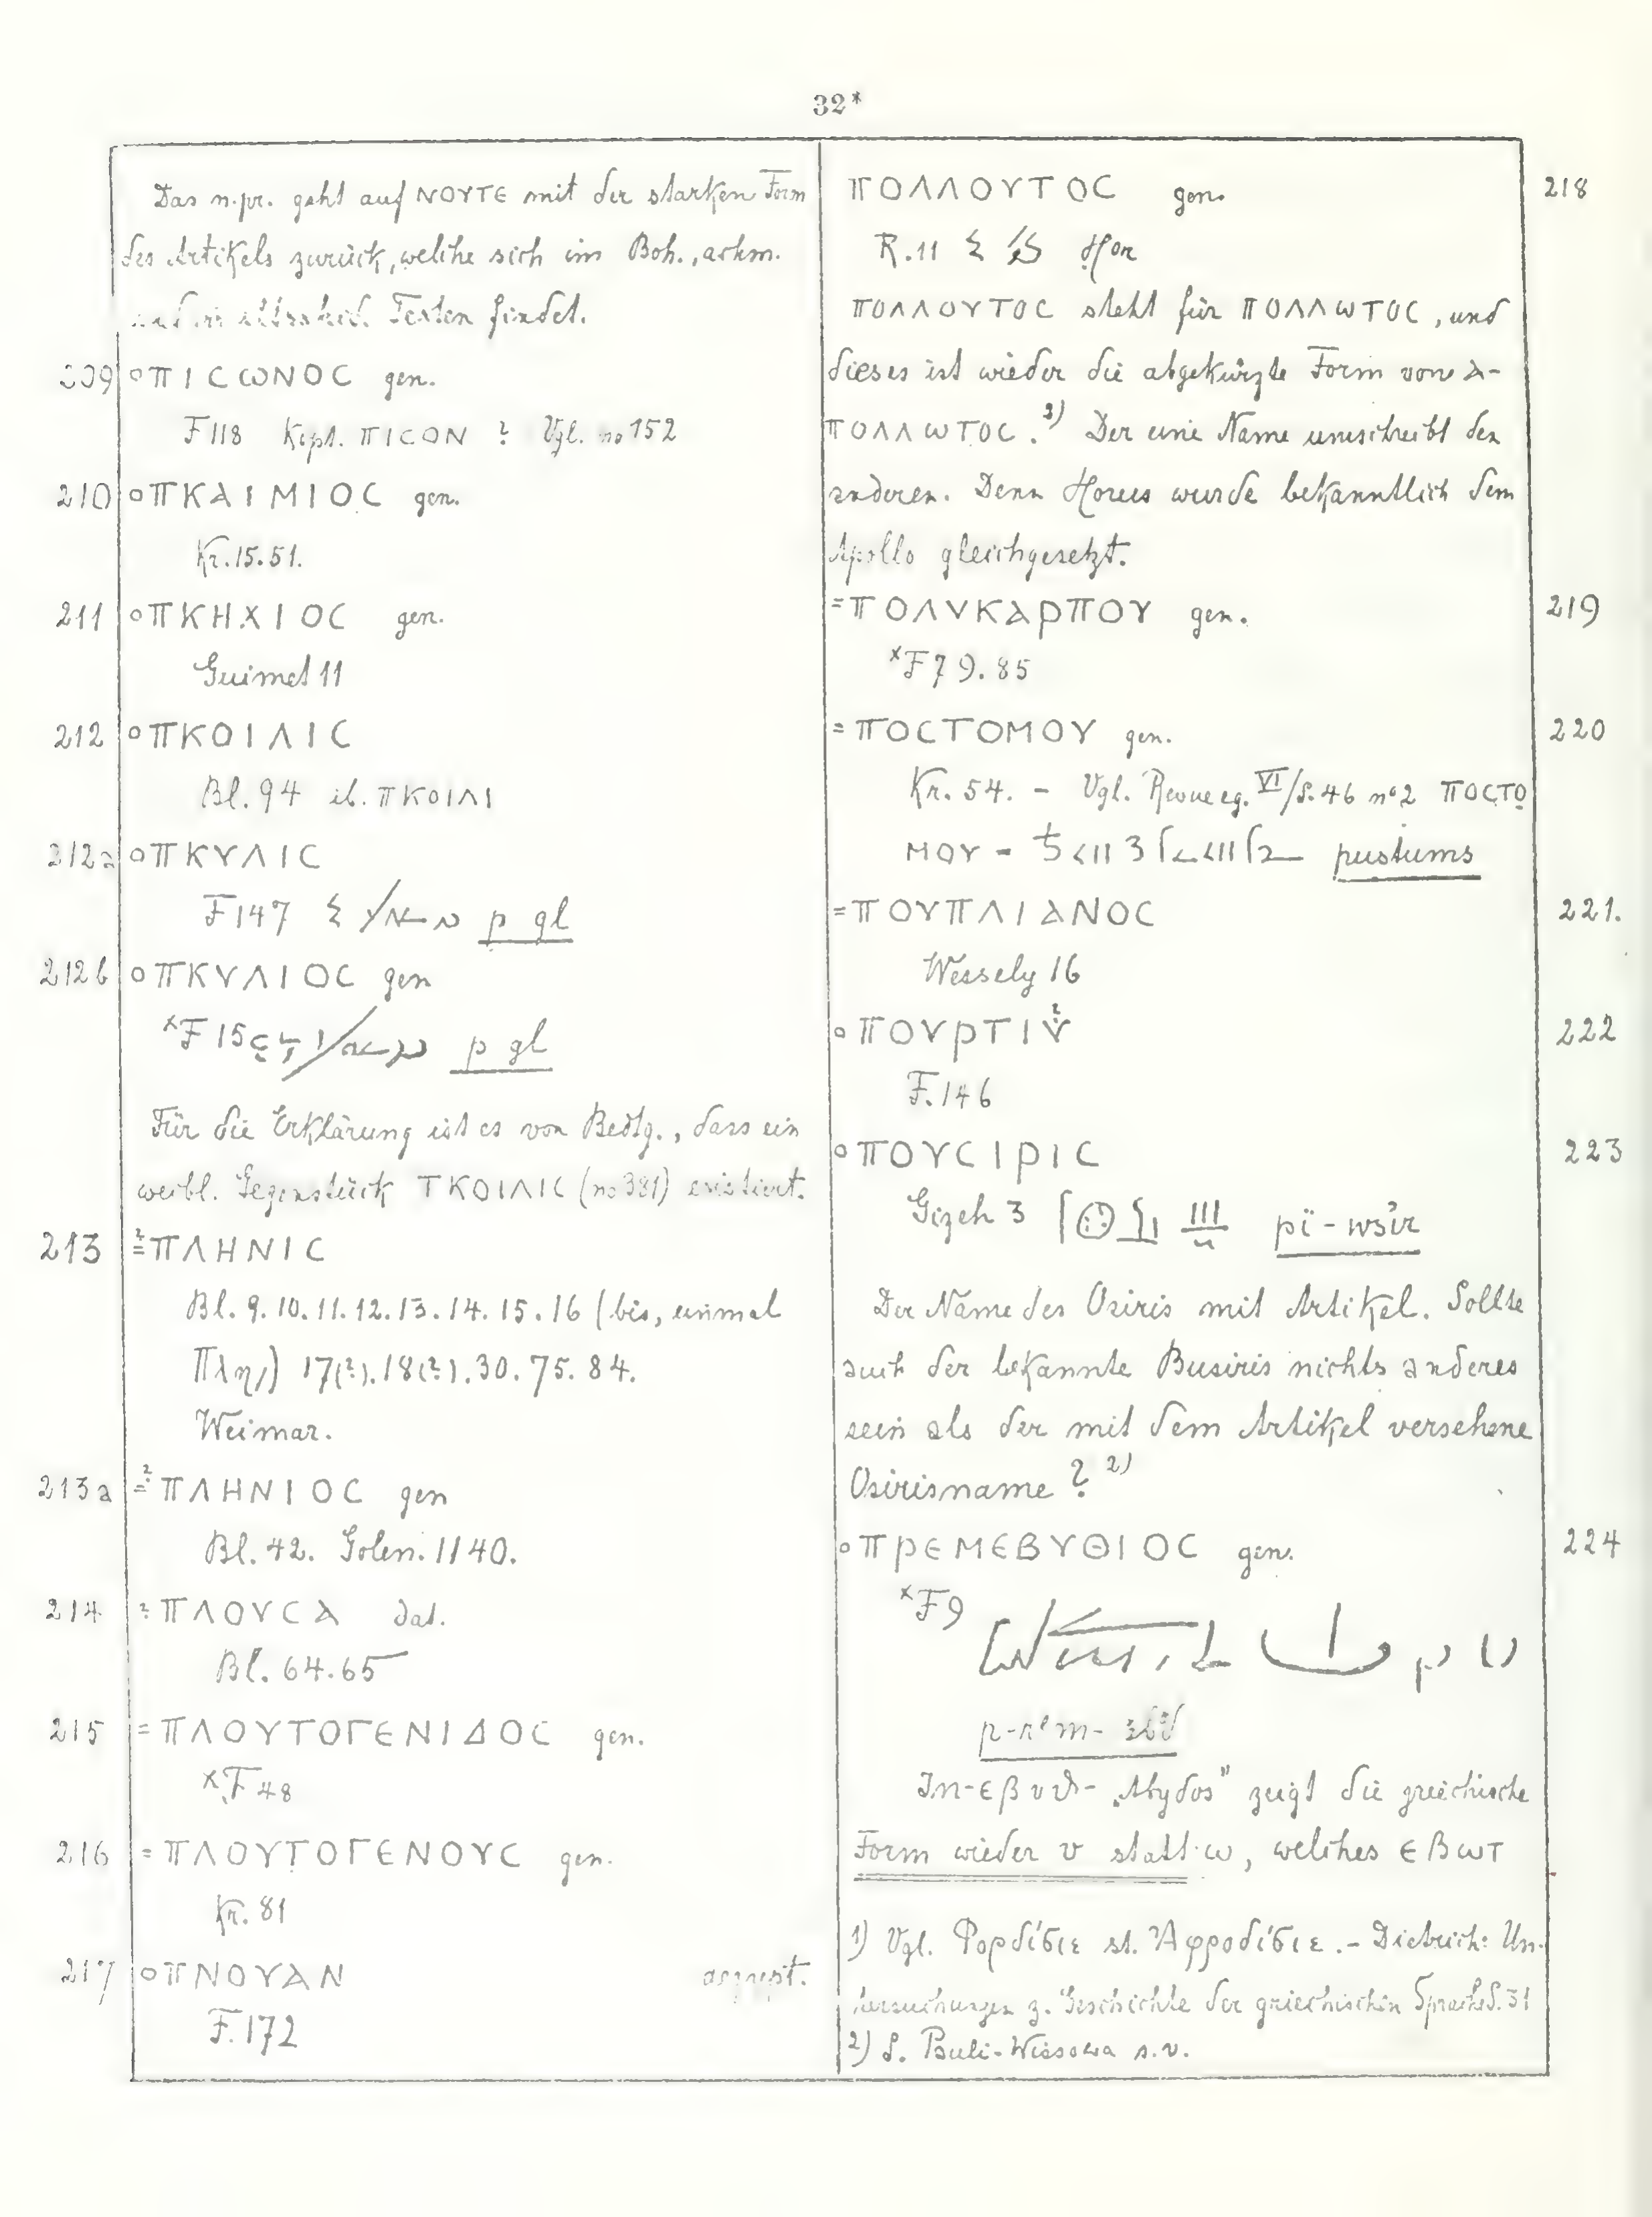 32*
Das n.pr. geht auf ΝΟΥΤЄ mit der starken Form
des Artikels zurück, welche sich im Boh., achm.
und in altsahid. Texten findet.
209 ○ΠΙCωΝΟC gen.
F118 Kopt. ΠΙCΟΝ ? Vgl. no 152
210 ○ΠΚΑΙΜΙΟC gen.
Kr. 15. 51.
211 ○ΠΚΗΧΙΟC gen.
Guimet 11
212 ○ΠΚΟΙΛΙC
Bl. 94 ib. ΠΚΟΙΛΙ
212a ○ΠΚΥΛΙC
F147 p gl
212b ○ΠΚΥΛΙΟC gen
×F 15 p gl
Für die Erklärung ist es von Bedtg., dass ein
weibl. Gegenstück ΤΚΟΙΛΙC (no 381) existiert.
213 ?=ΠΛΗΝΙC
Bl. 9. 10. 11. 12. 13. 14. 15. 16 (bis, einmal
Πλη/) 17(?). 18(?). 30. 75. 84.
Weimar.
213a ?=ΠΛΗΝΙΟC gen
Bl. 42. Golen. 1140.
214 ?ΠΛΟΥCΑ dat.
Bl. 64. 65
215 =ΠΛΟΥΤΟΓЄΝΙΔΟC gen.
×F 48
216 =ΠΛΟΥΤΟΓЄΝΟΥC gen.
Kr. 81
217 ○ΠΝΟΥΑΝ aegypt.
F. 172
ΠΟΛΛΟΥΤΟC gen. 218
R. 11 Hor
ΠΟΛΛΟΥΤΟC steht für ΠΟΛΛωΤΟC, und
dieses ist wieder die abgekürzte Form von Α-
ΠΟΛΛωΤΟC.²⁾ Der eine Name umschreibt den
anderen. Denn Horus wurde bekanntlich dem
Apollo gleichgesetzt.
=ΠΟΛΥΚΑΡΠΟΥ gen. 219
×F 79. 85
=ΠΟCΤΟΜΟΥ gen. 220
Kr. 54. – Vgl. Revue eg. VI/S. 46 no 2 ΠΟCΤΟ
ΜΟΥ = pustums
=ΠΟΥΠΛΙΑΝΟC 221.
Wessely 16
○ΠΟΥΡΤΙΥ̓? 222
F. 146
○ΠΟΥCΙΡΙC 223
Gizeh 3 pï-wsἰr
Der Name des Osiris mit Artikel. Sollte
auch der bekannte Busiris nichts anderes
sein als der mit dem Artikel versehene
Osirisname ? ²⁾
○ΠΡЄΜЄΒΥΘΙΟC gen. 224
×F9
p-rem-
In -εβυϑ- „Abydos" zeigt die griechische
Form wieder υ statt ω, welches ЄΒωΤ
1) Vgl. Φορδίσιε st. Ἀφροδίσιε. – Dieterich: Un-
tersuchungen z. Geschichte der griechischen Sprache S. 31
2) S. Pauli-Wissowa s.v.